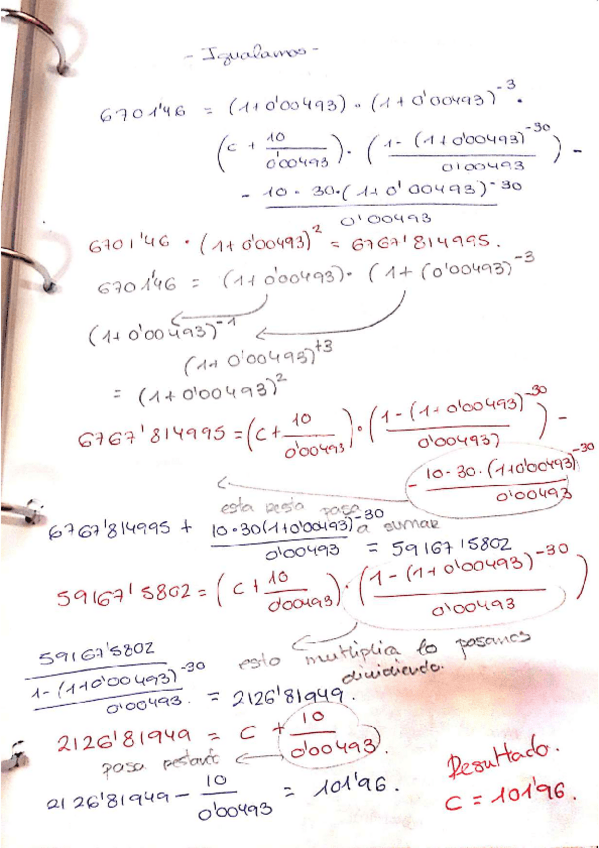 - Igualamos -
6701'46 = (1+0'00493) · (1+0'00493)^-3 ·
(C + 10/0'00493) · (1-(1+0'00493)^-30/0'00493) -
- 10 · 30 · (1+0'00493)^-30/0'00493
6701'46 · (1+0'00493)^2 = 6767'814995.
6701'46 = (1+0'00493) · (1+(0'00493)^-3
(1+0'00493)^-1
(1+0'00493)^+3
= (1+0'00493)^2
6767'814995 = (C + 10/0'00493) · (1-(1+0'00493)^-30/0'00493) -
- 10 · 30 · (1+0'00493)^-30/0'00493
esta resta pasa
a sumar
6767'814995 + 10 · 30(1+0'00493)^-30/0'00493 = 59167'5802
59167'5802 = (C + 10/0'00493) · (1-(1+0'00493)^-30/0'00493)
esto multiplia lo pasamos
dividiendo.
59167'5802/1-(1+0'00493)^-30/0'00493. = 2126'81949.
2126'81949 = C + 10/0'00493.
pasa restando
2126'81949 - 10/0'00493 = 101'96.
Resultado.
C = 101'96.